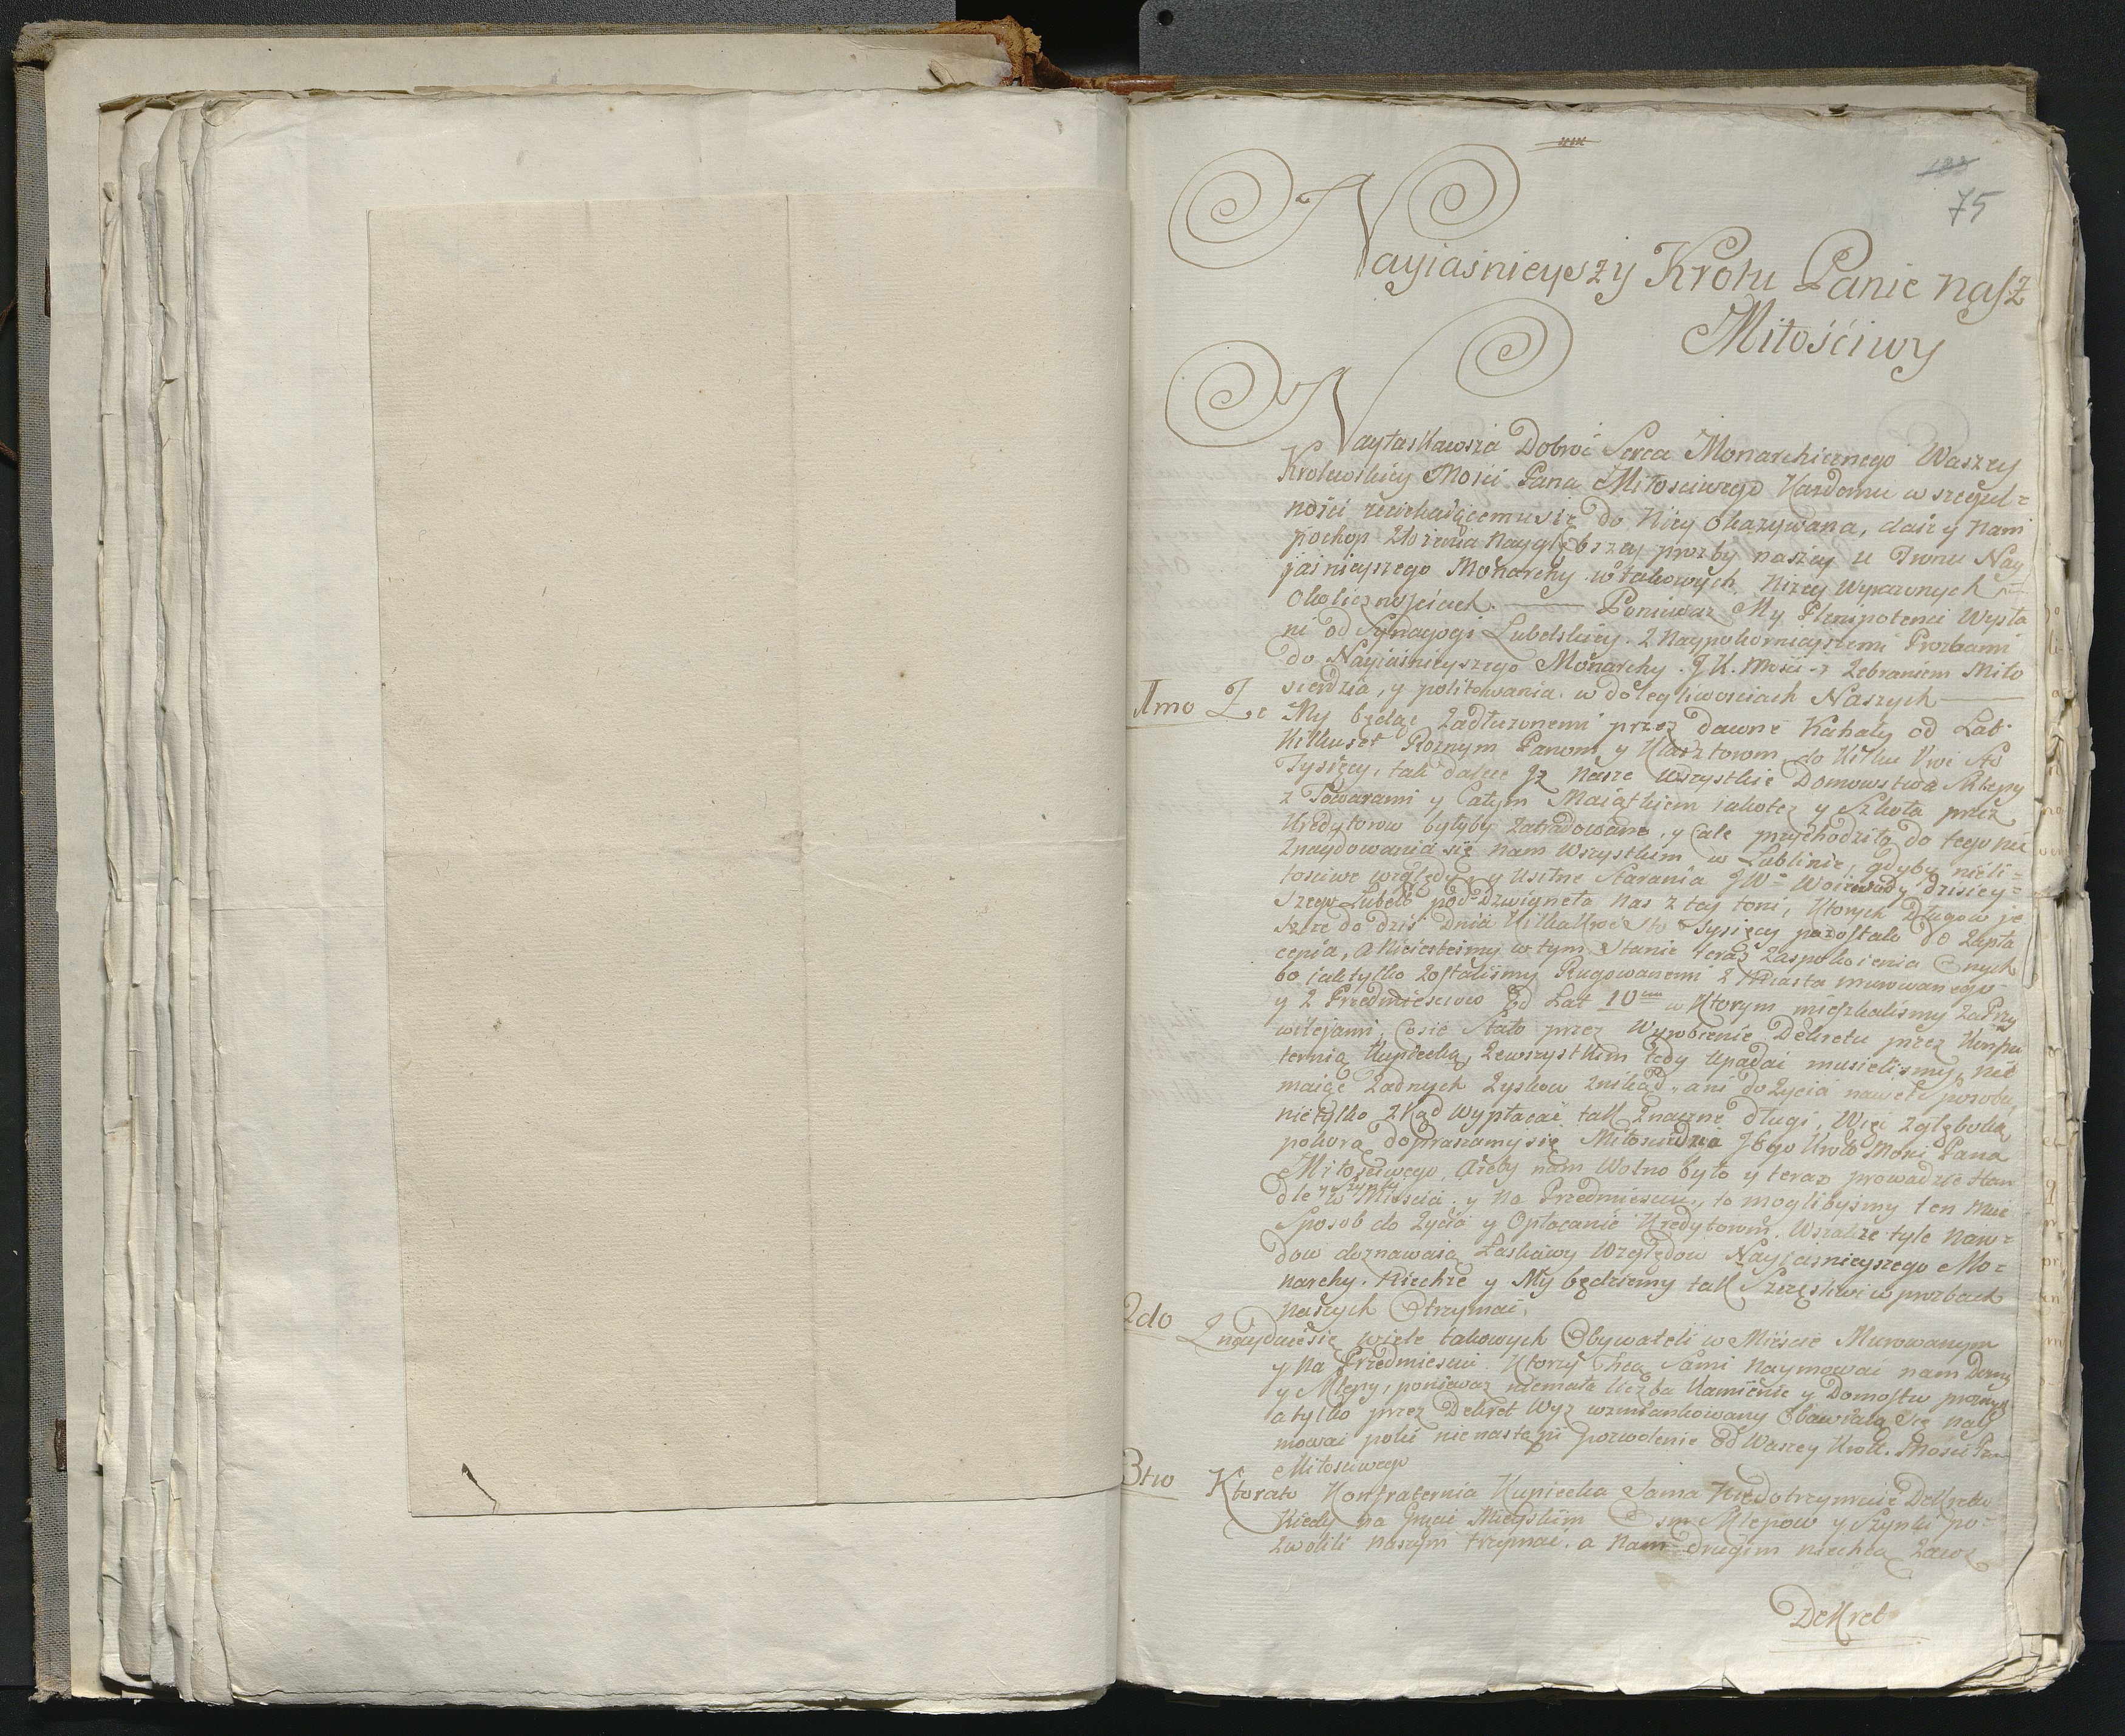 75
Nayiaśnieyszy Krolu Panie nasz
Miłościwy
Nayłaskawsza Dobroć Serca Monarchicznego Waszey
Krolewskiey Mości Pana Miłosciwego Kazdemu w szegul=
ności uciekaiącemu się do Niey okazywana, daie y nam
pochop złożenia naygłębszey prozby naszey u Tronu Nay
jasnieyszego Monarchy w takowych niżey wyrażonych
okolicznosciach. Poniewaz My Plenipotenci Wysła
ni od Synagogi Lubelskiey z naypokornieyszemi Prozbami
do Nayiasnieyszego Monarchy J. K. Mości z żebraniem Miło
sierdzia, y politowania w dolegliwosciach Naszych
1mo Że My będąc zadłuzonemi przez dawne Kahały od Lat
Kilkuset Roznym Panom y Klasztorom do Kilku Kroć Sto
Tysięcy, tak dalece Jz nasze wszystkie Domowstwa Sklepy
z Towarami y Całym Maiątkiem iakotez y Szkoła przez
Kredytorow byłyby zatradowane, y Cale przychodziło do tego nie
znaydowania się nam wszystkim w Lublinie, gdyby nie Mi=
łosciwe względy y usilne starania JW Woiewody dzisiey=
szego Lubel: poddzwigneła nas z tey toni, Ktorych Długow je
szcze do dziś dnia Kilka Kroć Sto Tysięcy pozostało do zapła
cenia, a nieiestesmy w tym stanie teraz zaspokoienia onych
bo iak tylko zostalismy Rugowanemi z Miasta murowanego
y z Przedmiesciow od Lat 10 w Ktorym mieszkalismy za Przy
wilejami, Co się stało przez Wyrobienie Dekretu przez Konfra
ternią Kupiecką, zewszystkim tedy upadać musielismy, nie
maiąc Zadnych Zyskow znikąd, ani do Zycia nawet sposobu,
nietylko zkąd wypłacać tak znaczne długi, Więc z głęboką
pokorą dopraszamy się Miłosierdzia Jego Krole Mości Pana
Miłosciwego, ażeby nam Wolno było y teraz prowadzić Han
dle y Szynki w Miescie y na Przedmiesciu, to moglibysmy ten mieć
Sposob do Zycia y Opłacanie Kredytorom. Wszakże tyle Naro=
dow doznawaią Łaskawy Względow Nayiasnieyszego Mo=
narchy. Niechże y My będziemy tak Szczęsliwi w prozbach
naszych Otrzymać.
2do Znayduie się wiele takowych Obywateli w Miescie Murowanym
y na Przedmiesciu Ktorzy chcą sami naymować nam Domy
y Sklepy, poniewaz niemała liczba Kamienic y Domostw prożnych
a tylko przez Dekret wyz wzmiankowany Obawiaią się nay
mować poki nie nastąpi pozwolenie od Waszey Krole. Mości Pana
Miłosciwego
3tio Ktorato Konfraternia Kupiecka Sama niedotrzymuie Dekretu
Kiedy na Jurei Mieyskim Osm Sklepow y Szynki po=
zwolili naszym trzymać, a nam drugim niechcą zaws
Dekret